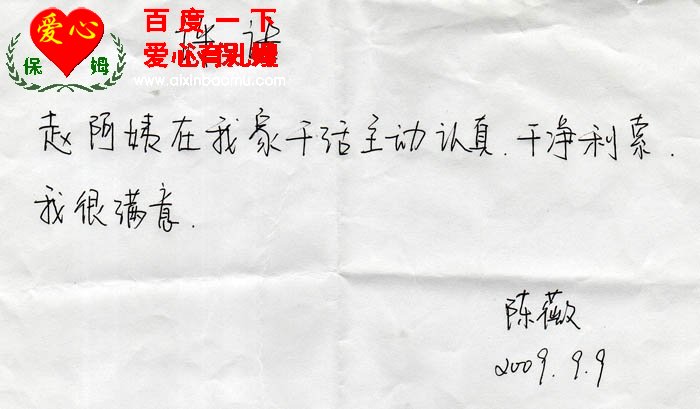 爱心
保姆
百度一下
爱心
www.aixinbaomu.com
赵阿姨在我家干活主动认真.干净利索.
我很满意.
陈薇
2009.9.9